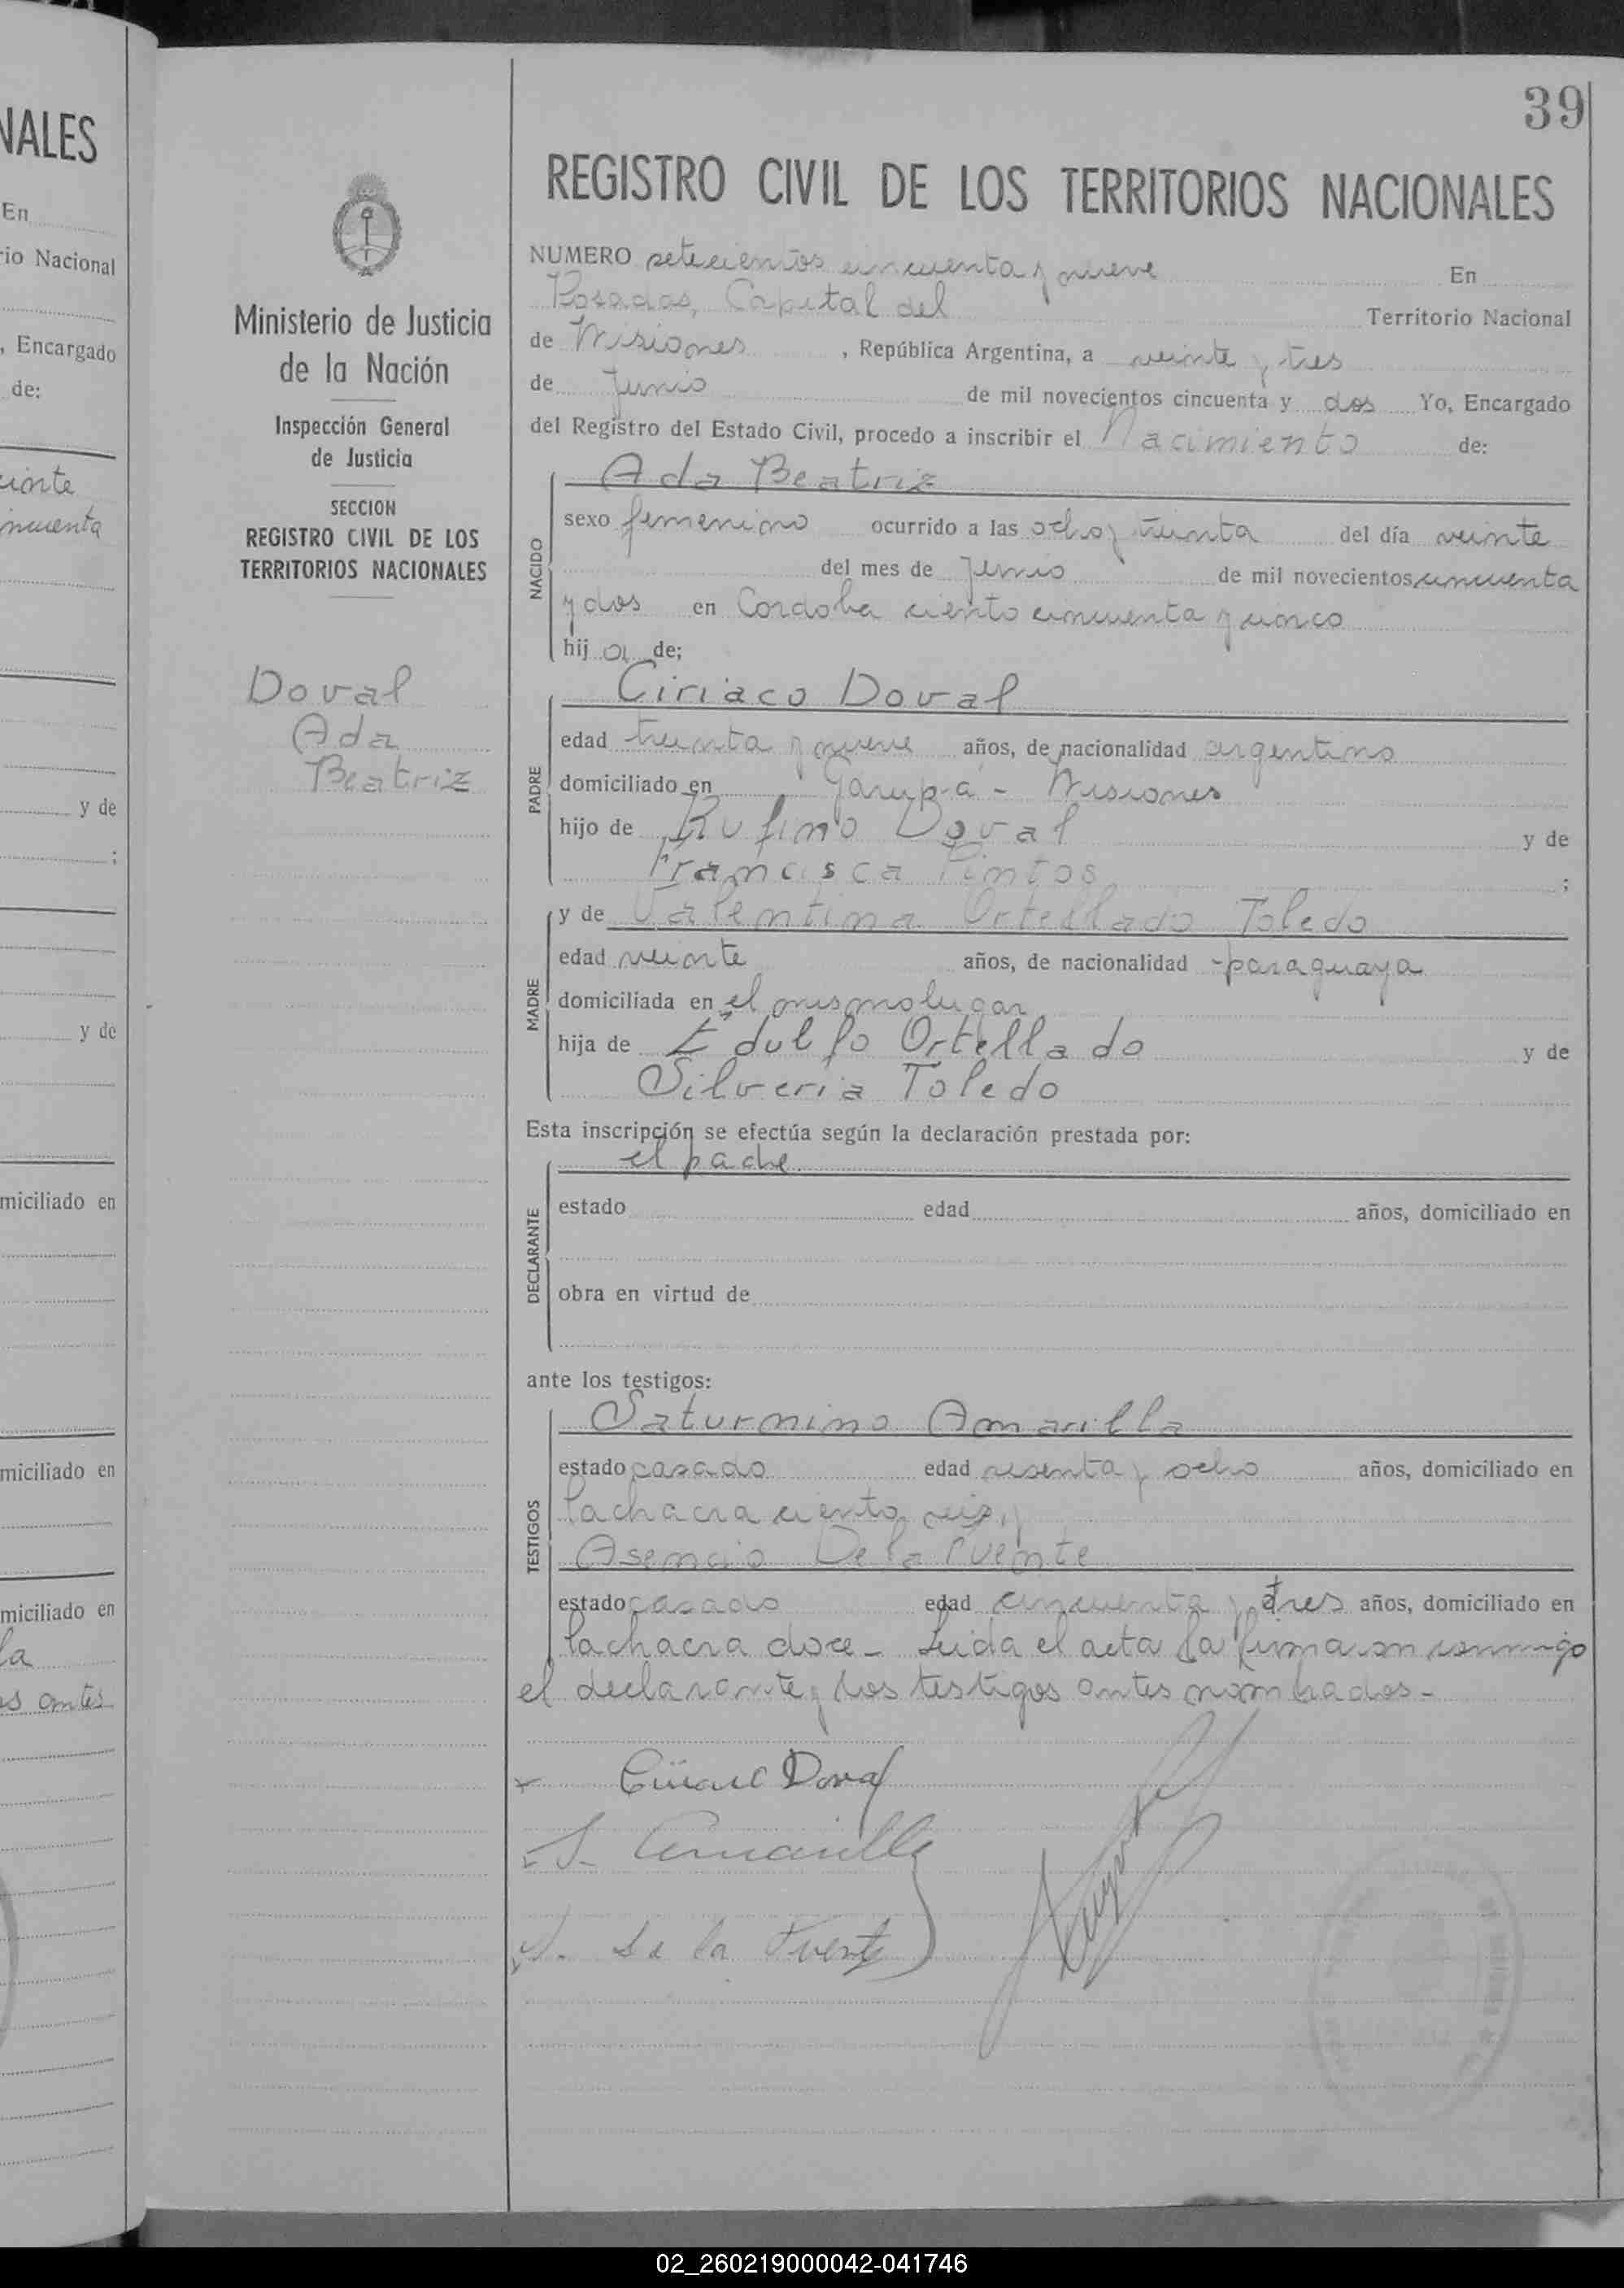 NALES
En
rio Nacional
, Encargado
de:
einte
incuenta
y de
;
y de
miciliado en
miciliado en
miciliado en
la
s antes
Ministerio de Justicia
de la Nación
Inspección General
de Justicia
SECCION
REGISTRO CIVIL DE LOS
TERRITORIOS NACIONALES
Doval
Ada
Beatriz
39
REGISTRO CIVIL DE LOS TERRITORIOS NACIONALES
NUMERO setecientos cincuenta y nueve En
Posadas, Capital del Territorio Nacional
de Misiones, República Argentina, a veinte y tres
de Junio de mil novecientos cincuenta y dos Yo, Encargado
del Registro del Estado Civil, procedo a inscribir el Nacimiento de:
Ada Beatriz
NACIDO
sexo femenino ocurrido a las ocho y treinta del día veinte
del mes de Junio de mil novecientos cincuenta
y dos en Cordoba ciento cincuenta y cinco
hija de;
Ciriaco Doval
PADRE
edad treinta y nueve años, de nacionalidad argentino
domiciliado en Garupá - Misiones
hijo de Rufino Doval y de
Francisca Pintos ;
y de Valentina Ortellado Toledo
MADRE
edad veinte años, de nacionalidad paraguaya
domiciliada en el mismo lugar
hija de Edulfo Ortellado y de
Silveria Toledo
Esta inscripción se efectúa según la declaración prestada por:
el padre
DECLARANTE
estado edad años, domiciliado en
obra en virtud de
ante los testigos:
Saturnino Amarilla
TESTIGOS
estado casado edad sesenta y ocho años, domiciliado en
la chacra ciento seis, y
Asencio De la Fuente
estado casado edad cincuenta y tres años, domiciliado en
la chacra doce - Leida el acta la firmaron conmigo
el declarante y los testigos antes nombados -
Ciriaco Doval
S. Amarilla
A. De la Fuente
02_260219000042-041746